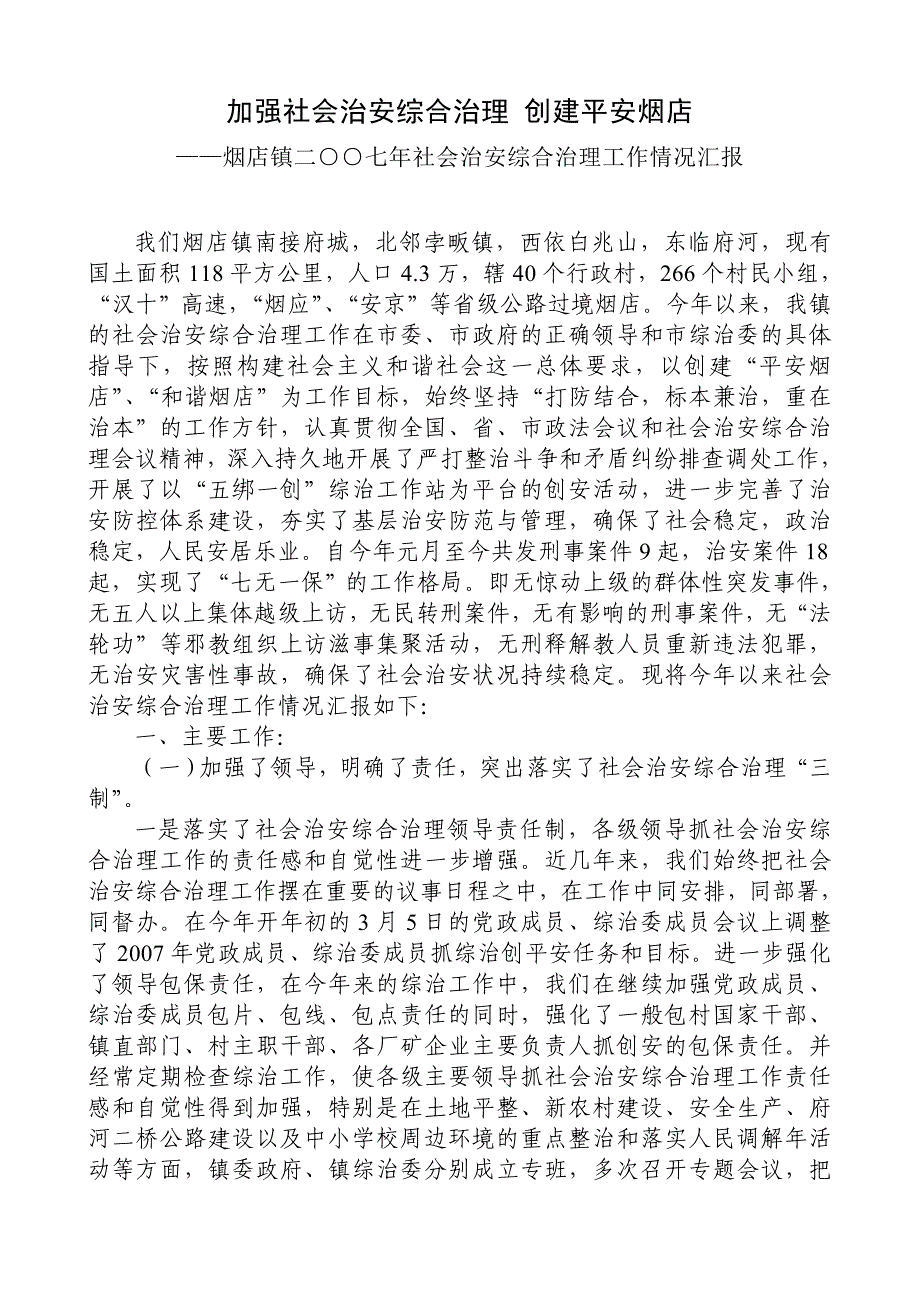 加强社会治安综合治理 创建平安烟店
——烟店镇二〇〇七年社会治安综合治理工作情况汇报
我们烟店镇南接府城，北邻孛畈镇，西依白兆山，东临府河，现有
国土面积 118 平方公里，人口 4.3 万，辖 40 个行政村，266 个村民小组，
“汉十”高速，“烟应”、“安京”等省级公路过境烟店。今年以来，我镇
的社会治安综合治理工作在市委、市政府的正确领导和市综治委的具体
指导下，按照构建社会主义和谐社会这一总体要求，以创建“平安烟
店”、“和谐烟店”为工作目标，始终坚持“打防结合，标本兼治，重在
治本”的工作方针，认真贯彻全国、省、市政法会议和社会治安综合治
理会议精神，深入持久地开展了严打整治斗争和矛盾纠纷排查调处工作，
开展了以“五绑一创”综治工作站为平台的创安活动，进一步完善了治
安防控体系建设，夯实了基层治安防范与管理，确保了社会稳定，政治
稳定，人民安居乐业。自今年元月至今共发刑事案件 9 起，治安案件 18
起，实现了“七无一保”的工作格局。即无惊动上级的群体性突发事件，
无五人以上集体越级上访，无民转刑案件，无有影响的刑事案件，无“法
轮功”等邪教组织上访滋事集聚活动，无刑释解教人员重新违法犯罪，
无治安灾害性事故，确保了社会治安状况持续稳定。现将今年以来社会
治安综合治理工作情况汇报如下：
一、主要工作：
（一）加强了领导，明确了责任，突出落实了社会治安综合治理“三
制”。
一是落实了社会治安综合治理领导责任制，各级领导抓社会治安综
合治理工作的责任感和自觉性进一步增强。近几年来，我们始终把社会
治安综合治理工作摆在重要的议事日程之中，在工作中同安排，同部署，
同督办。在今年开年初的 3 月 5 日的党政成员、综治委成员会议上调整
了 2007 年党政成员、综治委成员抓综治创平安任务和目标。进一步强化
了领导包保责任，在今年来的综治工作中，我们在继续加强党政成员、
综治委成员包片、包线、包点责任的同时，强化了一般包村国家干部、
镇直部门、村主职干部、各厂矿企业主要负责人抓创安的包保责任。并
经常定期检查综治工作，使各级主要领导抓社会治安综合治理工作责任
感和自觉性得到加强，特别是在土地平整、新农村建设、安全生产、府
河二桥公路建设以及中小学校周边环境的重点整治和落实人民调解年活
动等方面，镇委政府、镇综治委分别成立专班，多次召开专题会议，把